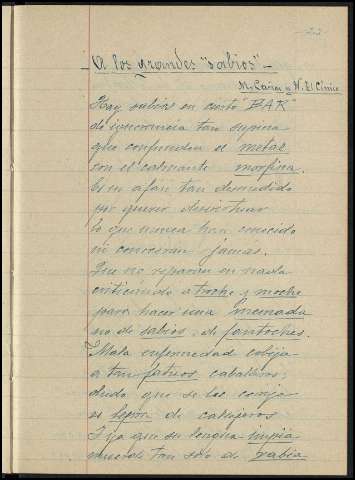 23
A los grandes "sabios"
M. Cañas y H. El Cínico
Hay sabios en cierto "BAR"
de ignorancia tan supina
que confunden el metal
con el calmante morfina.
Es su afán tan desmedido
por querer desvirtuar
lo que nunca han conocido
ni conocerán jamás.
Que no reparan en nada
criticando a troche y moche
para hacer una
no de sabios, de fantoches.
Mala enfermedad cobija
a tan fatuos caballeros;
dudo que se les corrija
es lepra de callejeros
Y ya que su lengua impía
muerde tan solo de rabia